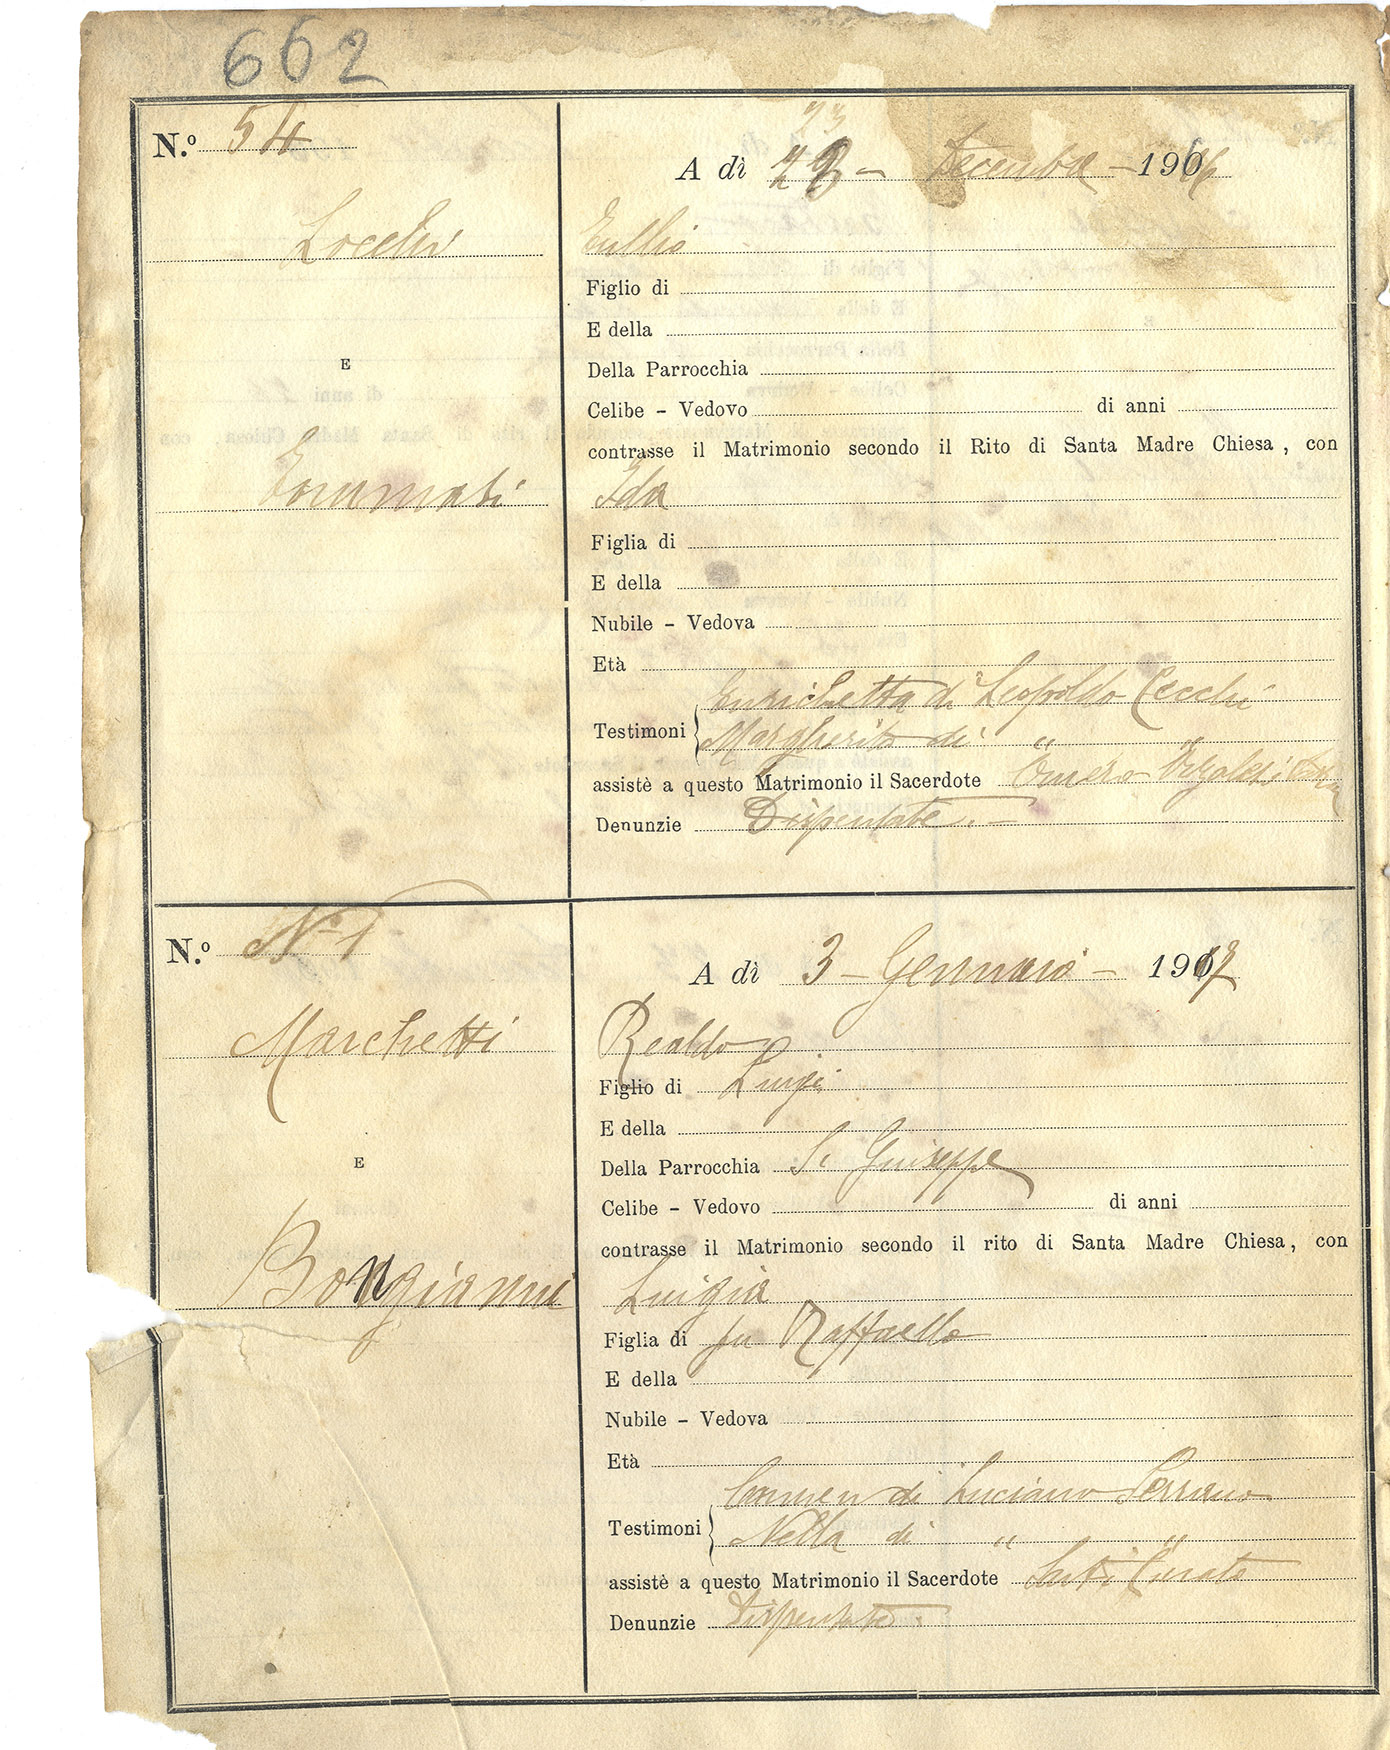 662
N.º 54
23
A dì 23 - Decembre - 1906
Locchi
Tullio
Figlio di
E della
E
Della Parrocchia
Celibe - Vedovo di anni
contrasse il Matrimonio secondo il Rito di Santa Madre Chiesa, con
Tommasi
Ida
Figlia di
E della
Nubile - Vedova
Età
Enrichetta di Leopoldo Cecchi
Testimoni
Margherita di " "
assistè a questo Matrimonio il Sacerdote Omero
Denunzie Dispensate. -
N.º N. 1
A dì 3 - Gennaio - 1917
Marchetti
Realdo
Figlio di Luigi
E della
E
Della Parrocchia S. Giuseppe
Celibe - Vedovo di anni
contrasse il Matrimonio secondo il rito di Santa Madre Chiesa, con
Bongianni
Luigia
Figlia di fu Raffaello
E della
Nubile - Vedova
Età
Carmen di Luciano Serrano
Testimoni
Nella di " "
assistè a questo Matrimonio il Sacerdote Curato
Denunzie Dispensate.